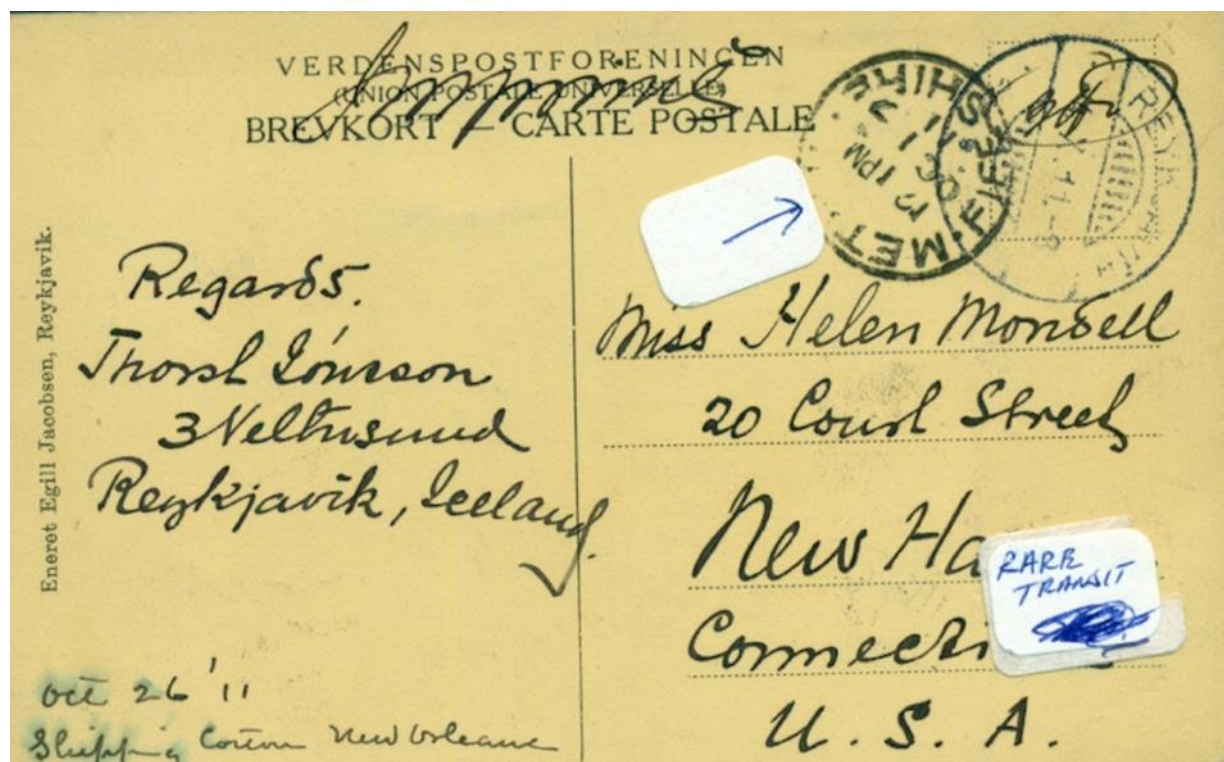 VERDENSPOSTFORENINGEN
(UNION POSTALE UNIVERSELLE)
BREVKORT — CARTE POSTALE
METH
FIFESHIRE
REYKJAVIK
Eneret Egill Jacobsen, Reykjavik.
Regards.
Thorst Jónsson
3 Veltusund
Reykjavik, Iceland.
Oct 26 '11
Shipping Cotton New Orleans
Miss Helen Mondell
20 Court Street
New Ha
Connecti
U. S. A.
RARE
TRANSIT